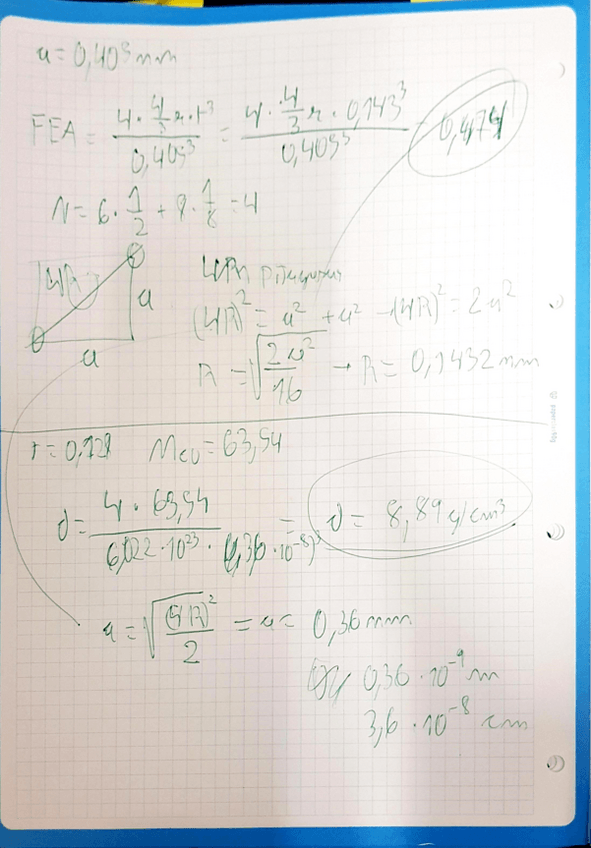 a = 0,405 mm
FEA = 4·4/3 π·r³ / 0,405³ = 4·4/3 π·0,143³ / 0,405³ = 0,474
N = 6·1/2 + 8·1/8 = 4
4R
a
a
(4R)² = a² + a² → (4R)² = 2a²
R = √(2a²/16) → R = 0,1432 mm
r = 0,128 Mcu = 63,54
d = 4·63,54 / 6,022·10²³·(3,6·10⁻⁸)³ = d = 8,89 g/cm³
a = √((4R)²/2) = a = 0,36 mm
0,36·10⁻⁹ m
3,6·10⁻⁸ cm